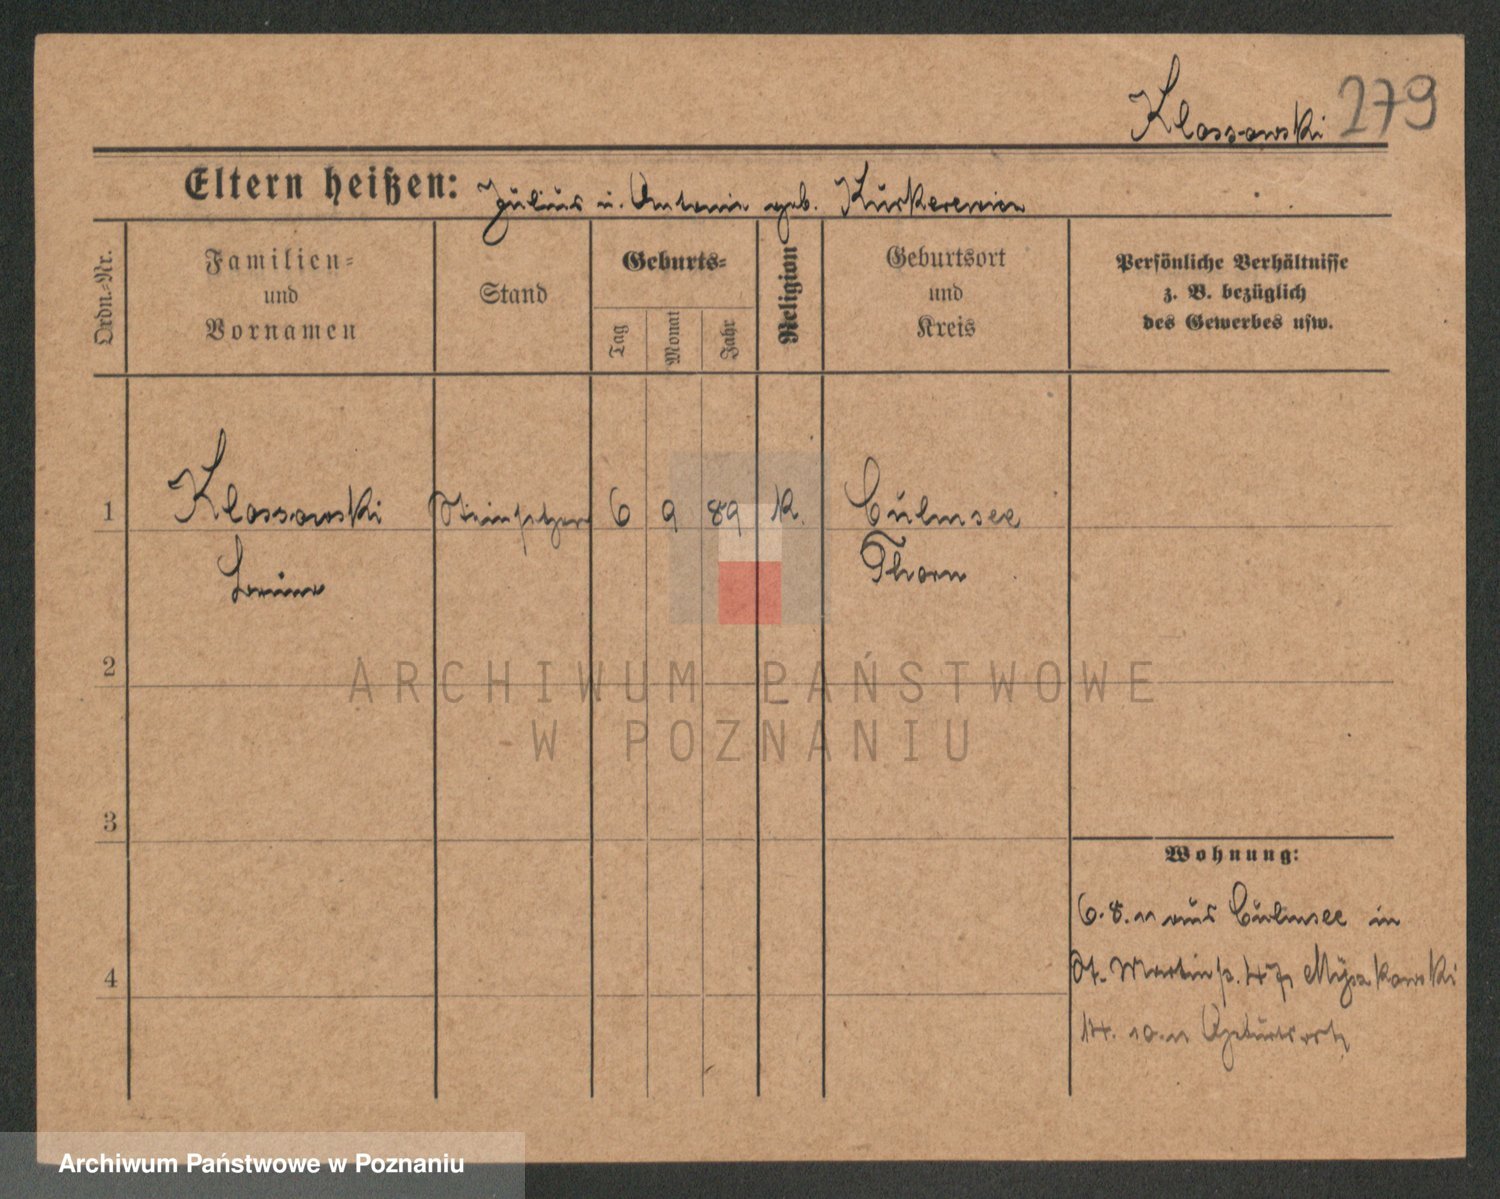 Klossowski 279
Eltern heißen: Julius u. Antonie geb.
Ordn.-Nr.
Familien-
und
Vornamen
Stand
Geburts-
Tag
Monat
Jahr
Religion
Geburtsort
und
Kreis
Persönliche Verhältnisse
z. B. bezüglich
des Gewerbes usw.
1 Klossowski Steinsetzer 6 9 89 K. Culmsee
Thorn
2
ARCHIWUM PAŃSTWOWE
W POZNANIU
3
Wohnung:
6.8.11 aus Culmsee in
4
St. Martinstr. 47
14.10.11 Geburtsort
Archiwum Państwowe w Poznaniu